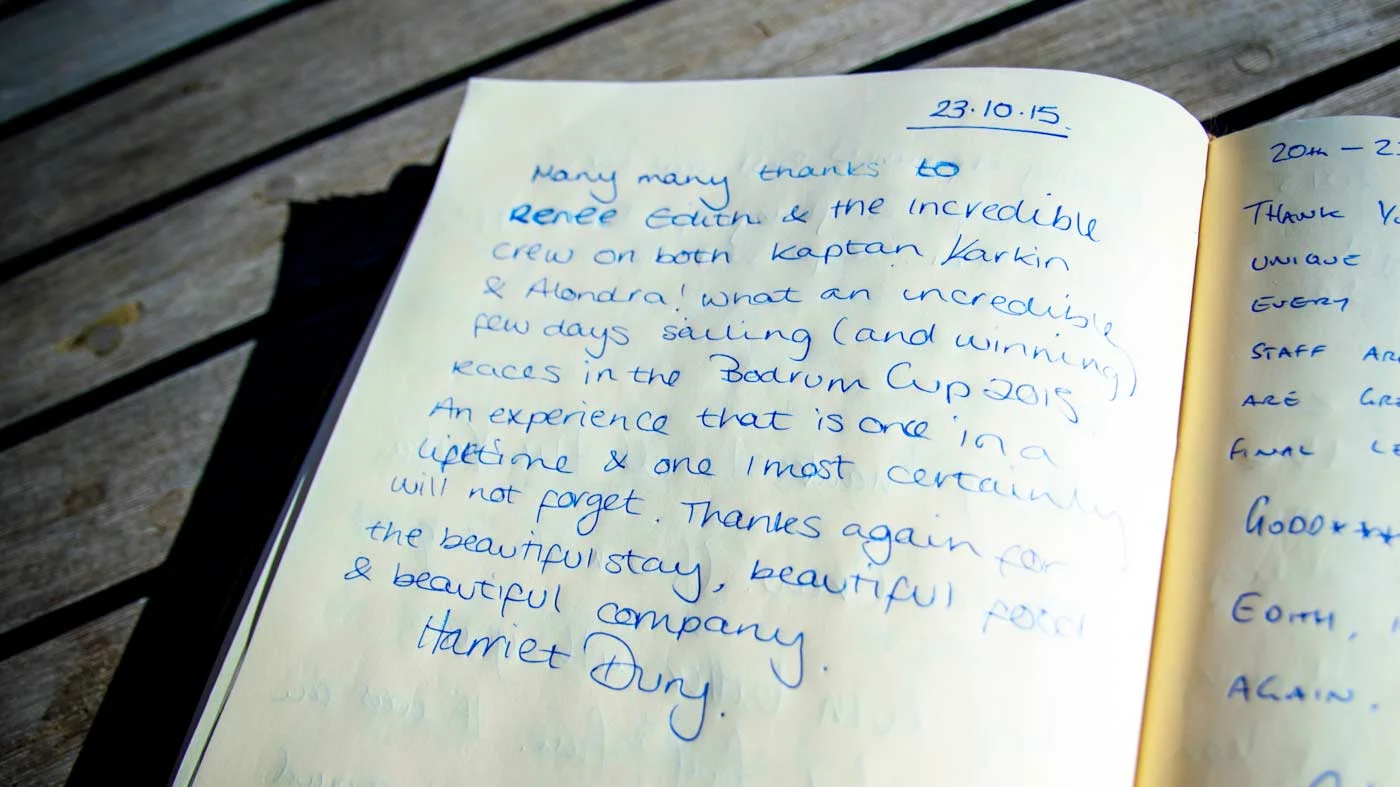 23.10.15.
Many many thanks to
Renée Edith & the incredible
crew on both Kaptan Karkin
& Alondra! what an incredible
few days sailing (and winning)
races in the Bodrum Cup 2015
An experience that is once in a
lifetime & one I most certainly
will not forget. Thanks again for
the beautiful stay, beautiful food
& beautiful company.
Harriet Dury.
20th - 23
THANK
UNIQUE
EVERY
STAFF
ARE
FINAL
GOOD***
EDITH,
AGAIN.